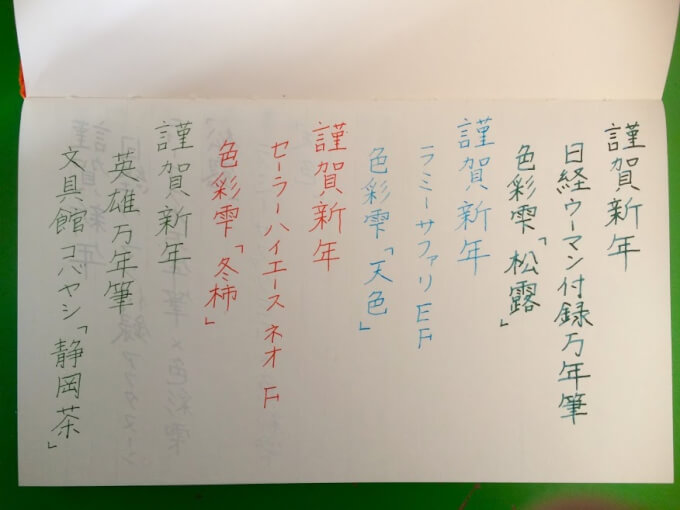 謹賀新年
日経ウーマン付録万年筆
色彩雫「松露」
謹賀新年
ラミーサファリEF
色彩雫「天色」
謹賀新年
セーラーハイエースネオ F
色彩雫「冬柿」
謹賀新年
英雄万年筆
文具館コバヤシ「静岡茶」